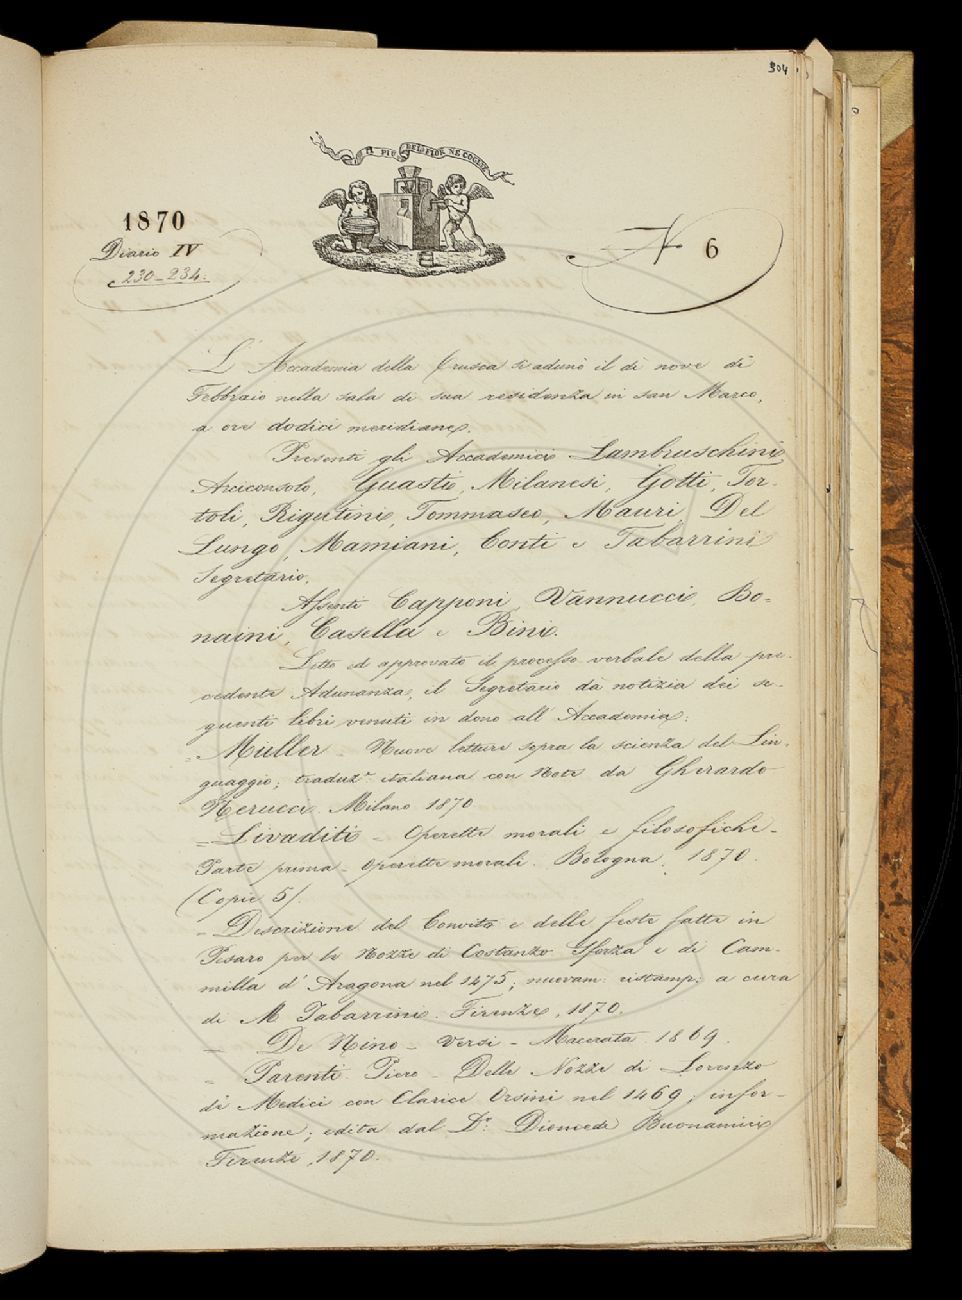 304
IL PIÙ BEL FIOR NE COGLIE
1870
Diario IV
230-234.
N 6
L'Accademia della Crusca si adunò il dì nove di
Febbraio nella sala di sua residenza in san Marco,
a ore dodici meridiane.
Presenti gli Accademici Lambruschini
Arciconsolo, Guasti, Milanesi, Gotti, Tor-
toli, Rigutini, Tommaseo, Mauri Del
Lungo, Mamiani, Conti e Tabarrini
Segretario.
Assenti Capponi, Vannucci, Bo-
naini, Casella e Bini.
Letto ed approvato il processo verbale della pre-
cedente Adunanza, il Segretario dà notizia dei se-
guenti libri venuti in dono all'Accademia:
= Müller - Nuove letture sopra la scienza del Lin-
guaggio; traduz.e italiana con Note da Gherardo
Nerucci. Milano 1870
= Livaditi - Operette morali e filosofiche -
Parte prima - Operette morali. Bologna, 1870.
(Copie 5).
- Descrizione del Convito e delle feste fatte in
Pesaro per le Nozze di Costanzo Sforza e di Cam-
milla d'Aragona nel 1475; nuovam. ristamp. a cura
di M. Tabarrini. Firenze, 1870.
- De Nino - Versi - Macerata 1869.
= Parenti Piero - Delle Nozze di Lorenzo
de' Medici con Clarice Orsini nel 1469; infor-
mazione; edita dal Dr. Diomede Buonamici
Firenze, 1870.